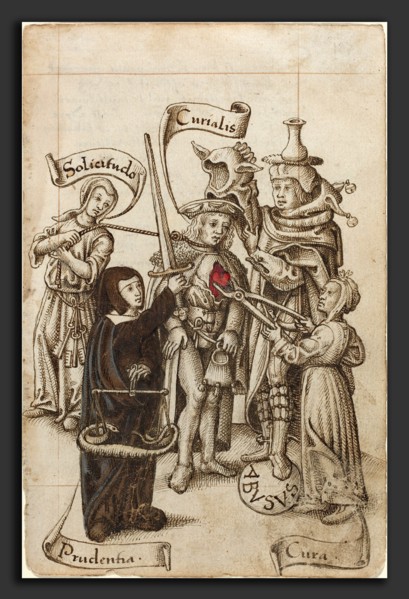 Curialis
Solicitudo
ABVSVS
Prudentia.
Cura.